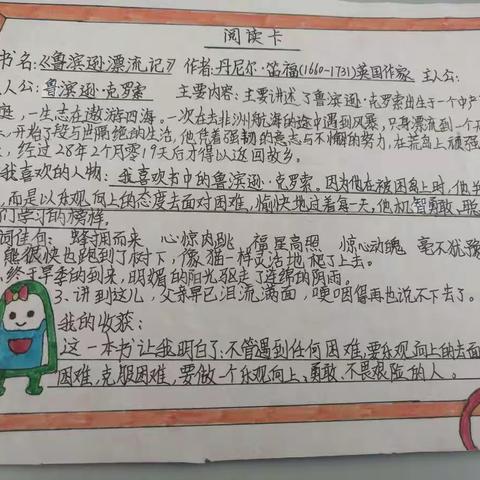 阅读卡
书名:《鲁滨逊漂流记》 作者:丹尼尔·笛福(1660-1731)英国作家 主公:
人公:鲁滨逊·克罗索 主要内容:主要讲述了鲁滨逊·克罗索出生于一个中产
庭,一生志在遨游四海。一次在去非洲航海的途中遇到风暴,只身漂流到一个
开始了段与世隔绝的生活,他凭着强韧的意志与不懈的努力,在荒岛上顽强
经过28年2个月零19天后才得以返回故乡。
我喜欢的人物:我喜欢书中的鲁滨逊·克罗索。因为他在被困岛上时,他
而是以乐观向上的态度去面对困难,愉快地过着每一天,他机智勇敢、聪
们学习的榜样。
词佳句: 蜂拥而来 心惊肉跳 福星高照 惊心动魄 毫不犹豫
熊很快也跑到了树下,像猫一样灵活地爬了上去。
终于旱季的到来,明媚的阳光驱走了连绵的阴雨。
3、讲到这儿,父亲早已泪流满面,哽咽得再也说不下去了。
我的收获:
这一本书让我明白了:不管遇到任何困难,要乐观向上的去面
困难,克服困难,要做一个乐观向上、勇敢、不畏艰险的人。